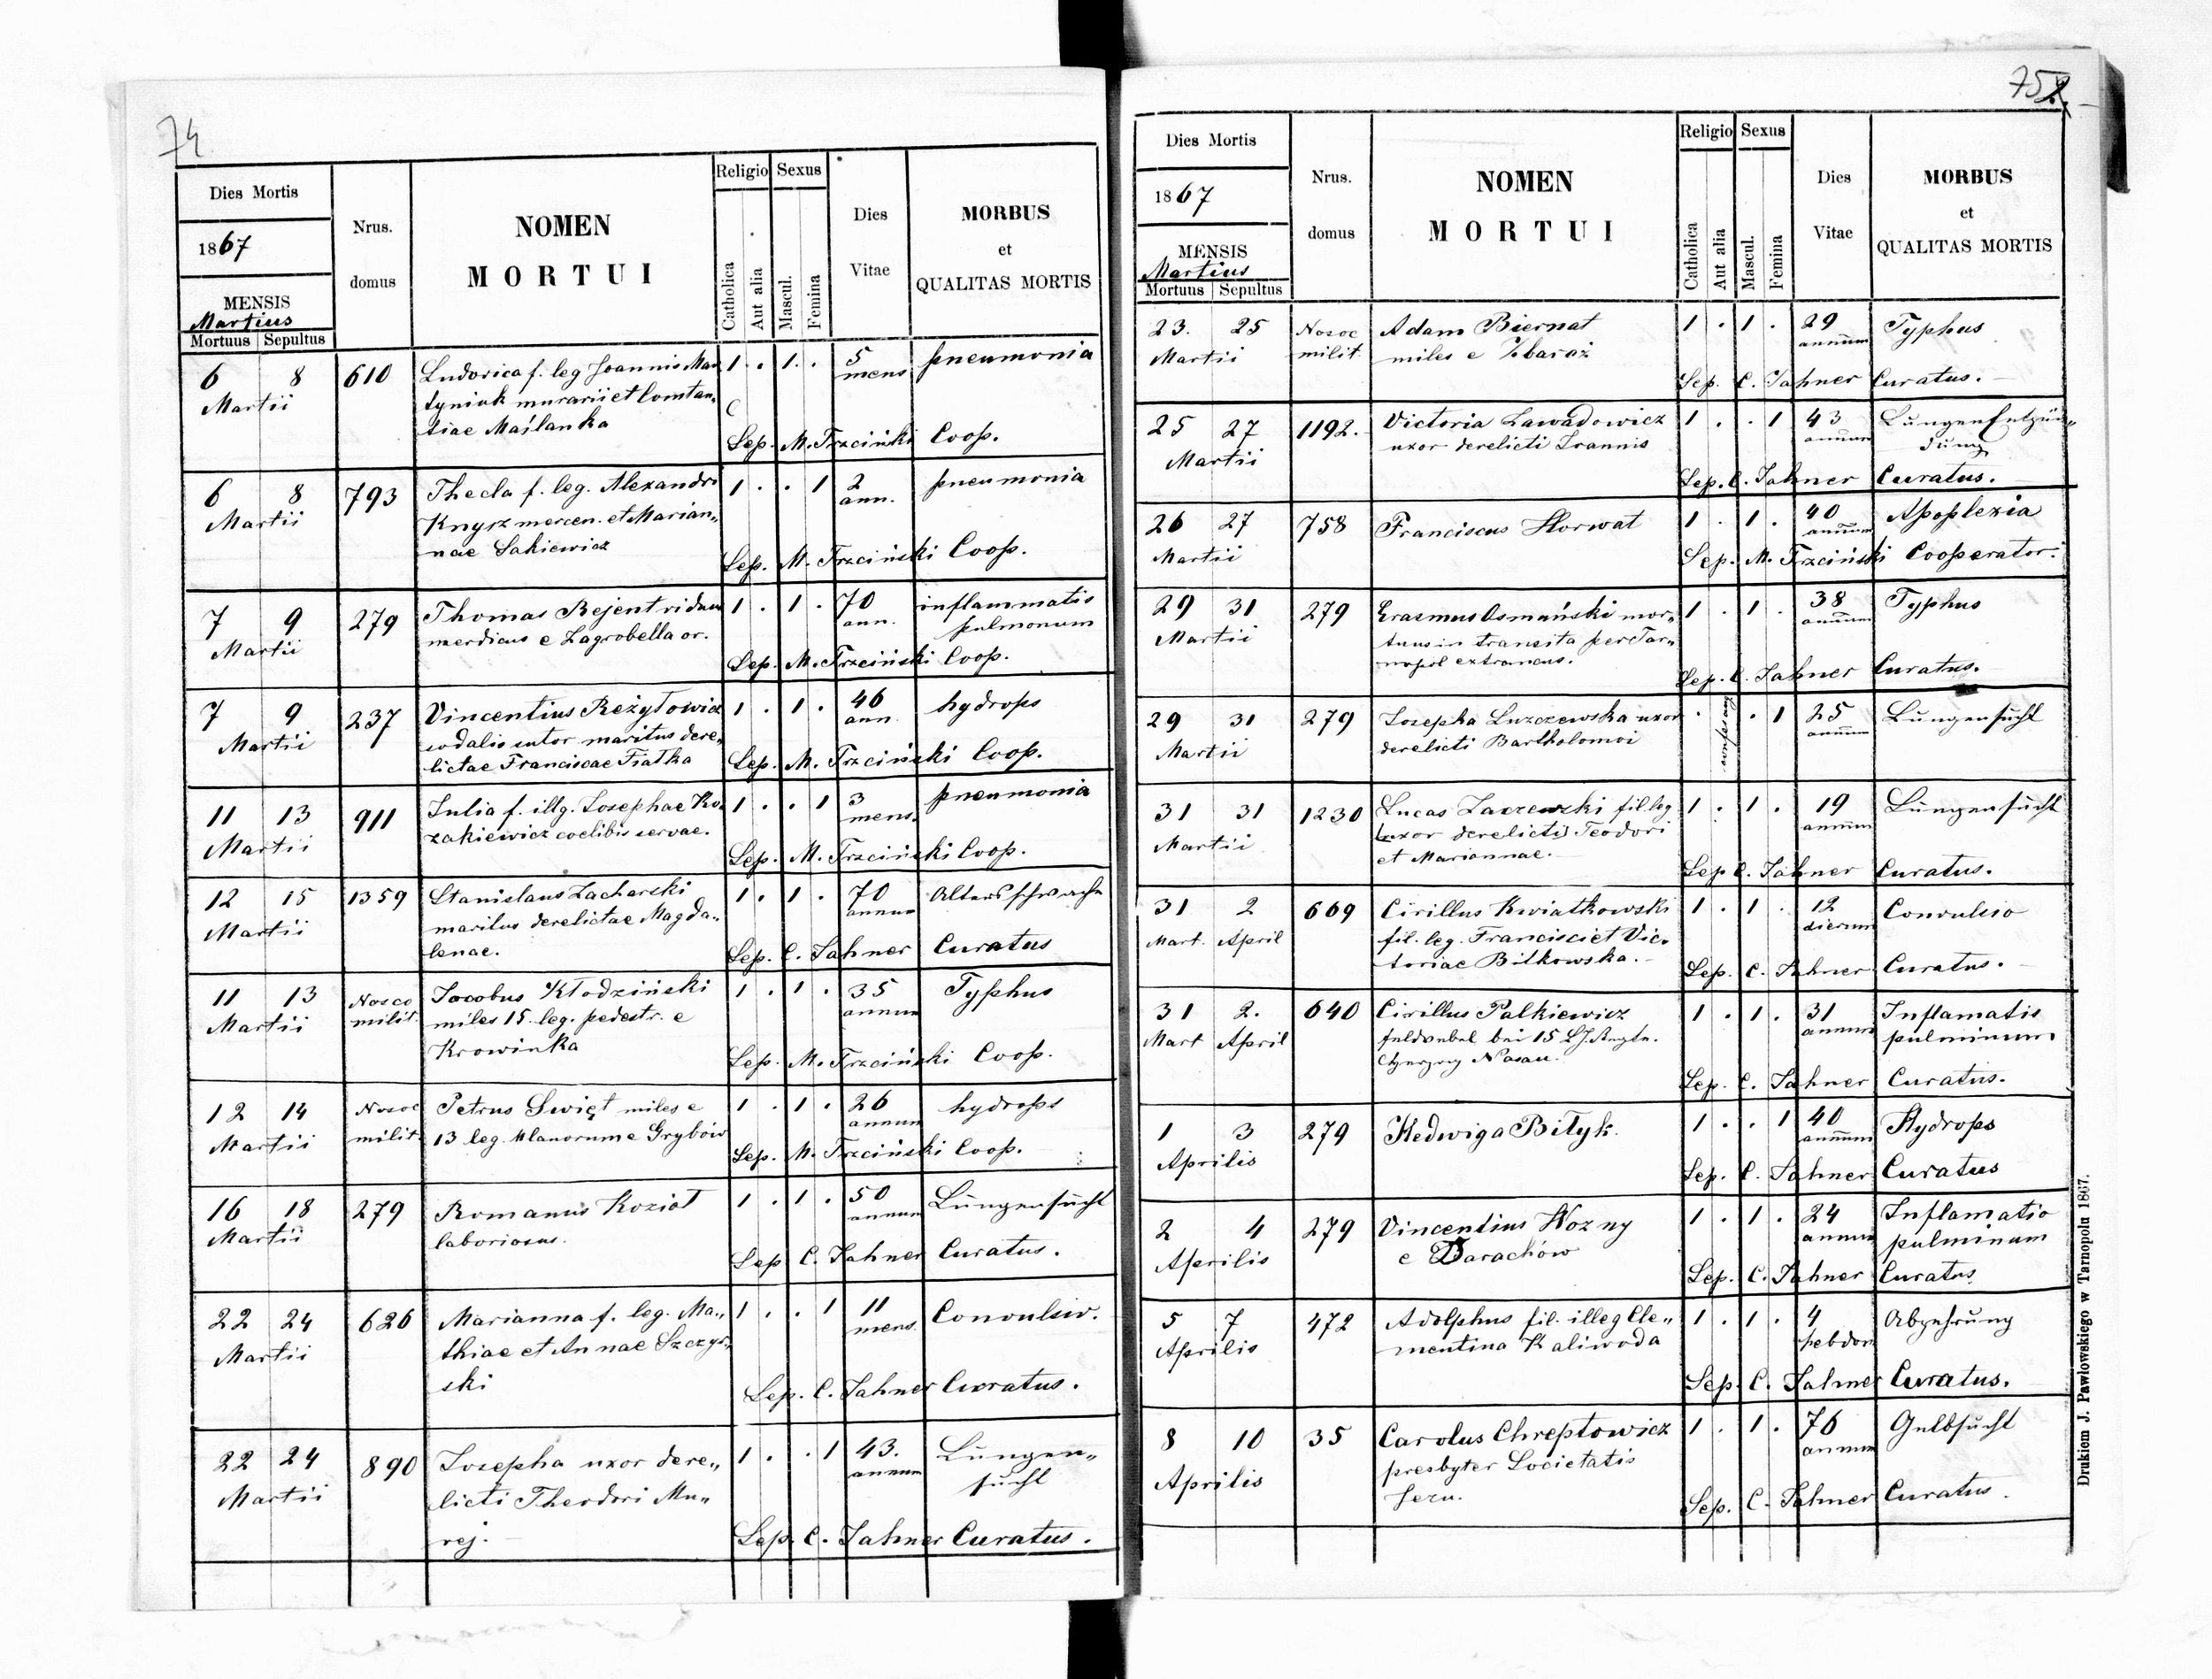 74
Dies Mortis
1867
MENSIS
Martius
Mortuus Sepultus
Nrus.
domus
NOMEN
MORTUI
Religio Sexus
Catholica
Aut alia
Mascul.
Femina
Dies
Vitae
MORBUS
et
QUALITAS MORTIS
6 8 610 Ludovica f. leg Joannis Mar 1 . 1 . 5 pneumonia
Martii tyniak murarii et Constan„ mens
tiae Maślanka
Sep. M. Trzciński Coop.
6 8 793 Thecla f. leg. Alexandri 1 . . 1 2 pneumonia
Martii Knysz mercen. et Marian„ ann.
nae Sakiewicz
Sep. M. Trzciński Coop.
7 9 279 Thomas Rejent viduus 1 . 1 . 70 inflammatis
Martii mendicus e Zagrobella or. ann. pulmonum
Sep. M. Trzciński Coop.
7 9 237 Vincentius Reżytowicz 1 . 1 . 46 hydrops
Martii sodalis sutor maritus dere„ ann.
lictae Franciscae Fiałka
Sep. M. Trzciński Coop.
11 13 911 Julia f. illg. Josephae Ko„ 1 . . 1 3 pneumonia
Martii zakiewicz coelibis servae. mens.
Sep. M. Trzciński Coop.
12 15 1359 Stanislaus Zacharski 1 . 1 . 70 Altersschwäche
Martii maritus derelictae Magda„ annum
lenae.
Sep. C. Jahner Curatus
11 13 Nosoc Jacobus Kłodziński 1 . 1 . 35 Typhus
Martii milit. miles 15. leg. pedestr. e annum
Krowinka
Sep. M. Trzciński Coop.
12 14 Nosoc Petrus Swięt miles e 1 . 1 . 26 hydrops
Martii milit 13 leg. Ulanorum e Grybów annum
Sep. M. Trzciński Coop.
16 18 279 Romanus Kozioł 1 . 1 . 50 Lungensucht
Martii laboriosus. annum
Sep C. Jahner Curatus.
22 24 626 Marianna f. leg. Ma„ 1 . . 1 11 Convulsio.
Martii thiae et Annae Szczyr„ mens.
ski
Sep. C. Jahner Curatus.
22 24 890 Josepha uxor dere„ 1 . . 1 43. Lungen„
Martii licti Theodori Mu„ annum sucht
rej.
Sep. C. Jahner Curatus.
75
Dies Mortis
1867
MENSIS
Martius
Mortuus Sepultus
Nrus.
domus
NOMEN
MORTUI
Religio Sexus
Catholica
Aut alia
Mascul.
Femina
Dies
Vitae
MORBUS
et
QUALITAS MORTIS
23. 25 Nosoc Adam Biernat 1 . 1 . 29 Typhus
Martii milit. miles e Zbaraż annum
Sep. C. Jahner Curatus.
25 27 1192. Victoria Zawadowicz 1 . . 1 43 Lungen Entzün„
Martii uxor derelicti Joannis annum dung
Sep. C. Jahner Curatus.
26 27 758 Franciscus Horwat 1 . 1 . 40 Apoplexia
Martii annum
Sep. M. Trzciński Cooperator.
29 31 279 Erasmus Osmański mor„ 1 . 1 . 38 Typhus
Martii tuus in transita per Tar„ annum
nopol extraneus.
Sep. C. Jahner Curatus.
29 31 279 Josepha Luszczewska uxor . . 1 25 Lungensucht
Martii derelicti Bartholomei annum
31 31 1230 Lucas Zaczewski fil. leg 1 . 1 . 19 Lungensucht
Martii (uxor derelicti) Teodori annum
et Mariannae.
Sep C. Jahner Curatus.
31 2 669 Cirillus Kwiatkowski 1 . 1 . 12 Convulsio
Mart. April fil. leg. Francisci et Vic„ dierum
toriae Bitkowska.
Sep. C. Jahner Curatus.
31 2. 640 Cirillus Palkiewicz 1 . 1 . 31 Inflamatis
Mart April feldwebel bei 15 annum pulminum
Nasau.
Sep. C. Jahner Curatus.
1 3 279 Hedwiga Bityk. 1 . . 1 40 Hydrops
Aprilis annum
Sep. C. Jahner Curatus
2 4 279 Vincentius Wozny 1 . 1 . 24 Inflamatio
Aprilis e Darachów annum pulminum
Sep. C. Jahner Curatus
5 7 472 Adolphus fil. illeg Cle„ 1 . 1 . 4 Abzehrung
Aprilis mentina Kaliwoda hebdom
Sep. C. Jahner Curatus.
8 10 35 Carolus Chreptowicz 1 . 1 . 76 Gelbsucht
Aprilis presbyter Societatis annum
Jezu.
Sep. C. Jahner Curatus.
Drukiem J. Pawłowskiego w Tarnopolu 1867.